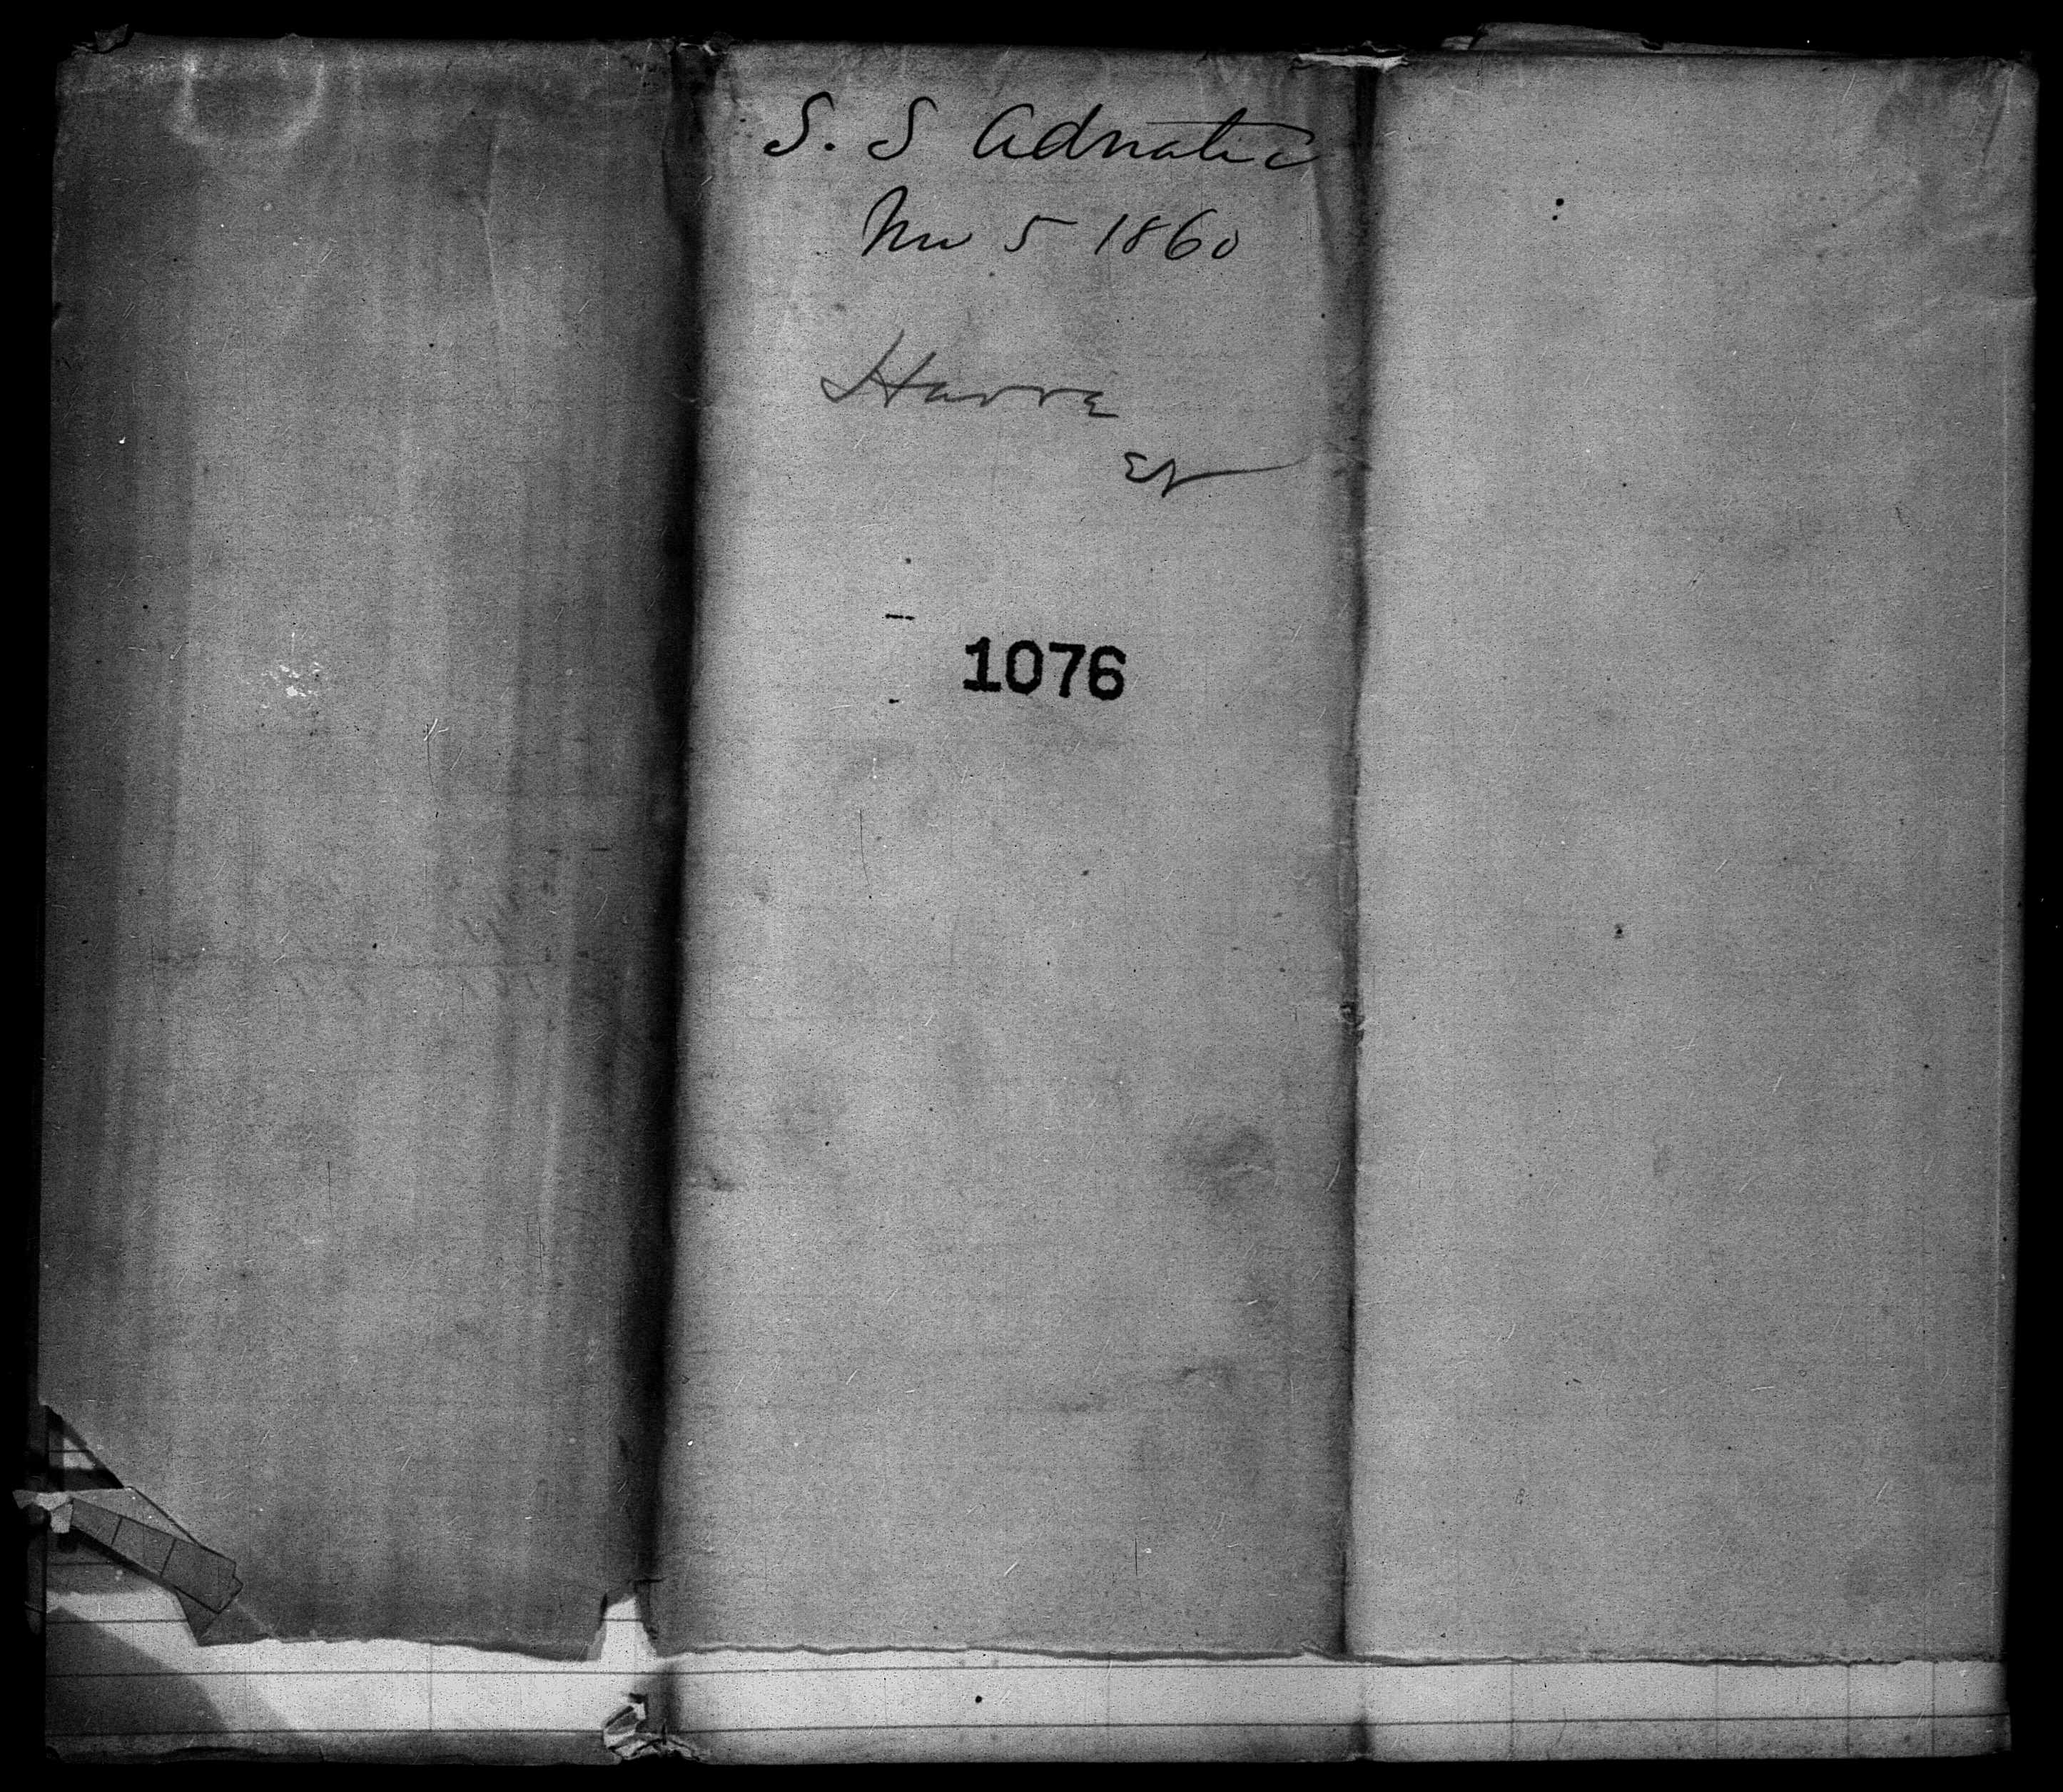 S. S Adriatic
Nov 5 1860
Havre
1076